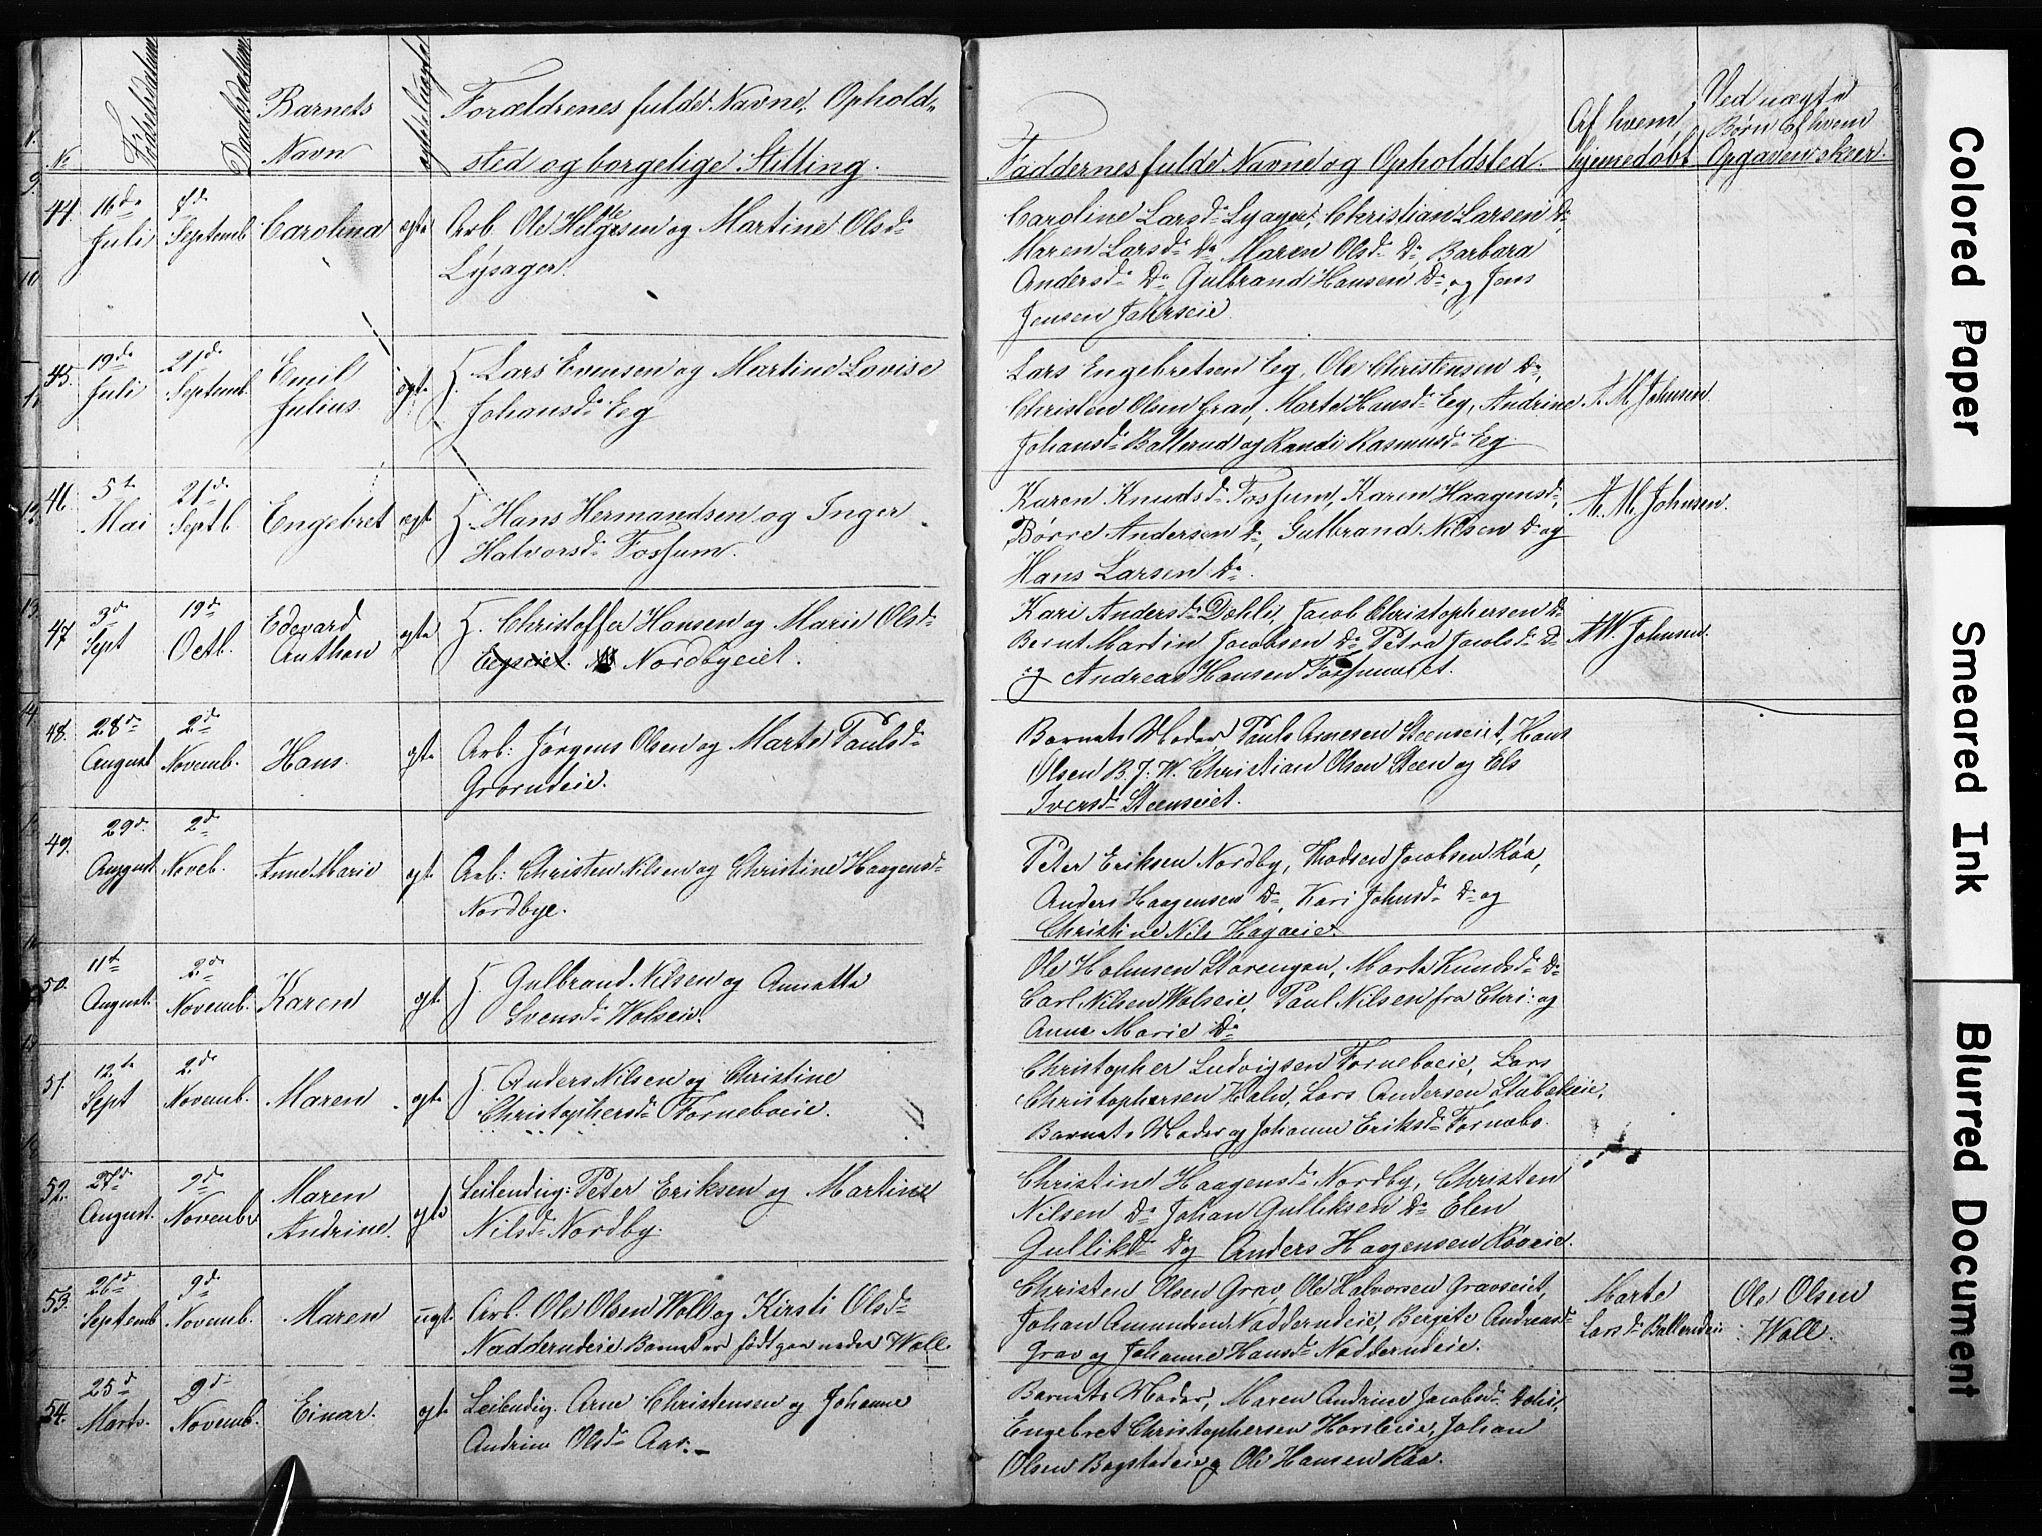 No
Fødselsdatum
Daabsdatum
Barnets
Navn
Forældrenes fulde Navne, Ophold-
sted og borgelige Stilling.
Faddernes fulde Navne og Opholdsted.
Af hvem
hjemmedøbt
Ved uægte
Børn af hvem
Opgaven skeer.
44. 16de Juli
Septemb. Carolina ægte Arb. Ole Helgesen og Martine Olsd.
Lysager.
Caroline Larsd. Lysager, Christian Larsen Do,
Maren Larsd. Do Maren Olsd. Do Barbara
Andersd. Do, Gulbrand Hansen Do, og Jens
Jensen Jahrseie
45. 19de Juli
21de Septemb. Emil
Julius ægte Lars Evensen og Martine Lovise
Johansd. Eeg
Lars Engebretsen Eeg, Ole Christensen Do,
Christen Olsen Grav, Marte Hansd. Eeg, Andrine
Johansd. Ballerud og Randi Rasmusd. Eeg.
A. M. Johnsen.
46. 5te Mai
21de Septb. Engebret ægte Hans Hermandsen og Inger
Halvorsd. Fossum.
Karen Knudsd. Fossum, Karen Haagensd.
Børre Andersen Do, Gulbrand Nilsen Do og
Hans Larsen Do.
A. M. Johnsen.
47. 3de Sept
19de Octb. Edevard
Anthon ægte Christoffer Hansen og Marie Olsd.
Eegseiet. Nordbyeiet.
Kari Andersd. Dehli, Jacob Christophersen Do
Bernt Martin Jacobsen Do, Petra Jacobsd. Do
og Andreas Hansen Fossumeiet.
Johnsen.
48. 28de August
2de Novemb. Hans. ægte Arb: Jørgens Olsen og Marte Paulsd.
Barnets Moder, Paul Arnesen Steenseiet, Hans
Olsen B. J. W. Christian Olsen Steen og Els
Iversd. Steenseiet.
49. 29de August
2de Noveb. Anne Marie ægte Arb: Christen Nilsen og Christine Haagensd.
Nordbye.
Peter Eriksen Nordby, Madsen Jacobsen Røa,
Anders Haagensen Do, Kari Johnsd. Do og
Christine Nils Hagaeie.
50. 11te August.
2de Novemb. Karen ægte Gulbrand Nilsen og Annette
Svensd. Wolseie.
Ole Holmsen Storengen, Marte Knudsd. Do
Carl Nilsen Wolseie, Paul Nilsen fra Chri: og
Anne Marie Do
51. 12te Sept
2de Novemb. Maren ægte Anders Nilsen og Christine
Christophersd. Forneboeie.
Christopher Ludvigsen Forneboeie, Lars
Christophersen Holn, Lars Andersen Stabekeie,
Barnets Moder og Johanne Eriksd. Fornebo.
52. 27de August.
9de Novembr Maren
Andrine. ægte Leilendig: Peter Eriksen og Martine
Nilsd. Nordby.
Christine Haagensd. Nordby, Christen
Nilsen Do Johan Gulliksen Do Elen
Gullikd. Do og Anders Haagensen Røaeie.
53. 26de Septemb
9de Novemb. Maren uægte Arb. Ole Olsen Woll og Kirsti Olsd.
Nadderudeie Barnet er født paa nedre Woll.
Christen Olsen Grav, Ole Halvorsen Gravseiet,
Johan Amundsen Nadderudeie, Bergete Andreasd.
Grav og Johanne Hansd. Nadderudeie.
Marte
Larsd. Ballerudeie
Ole Olsen
Woll.
54. 25de Marts.
9de Novemb. Einar. ægte Leilendig. Arne Christensen og Johanne
Andrine Olsd. Aas.
Barnets Moder, Maren Andrine Jacobsd. Dehli,
Engebret Christophersen Horsleeie, Johan
Olsen Bogstadeie og Ole Hansen Røa.
Colored Paper
Smeared Ink
Blurred Document